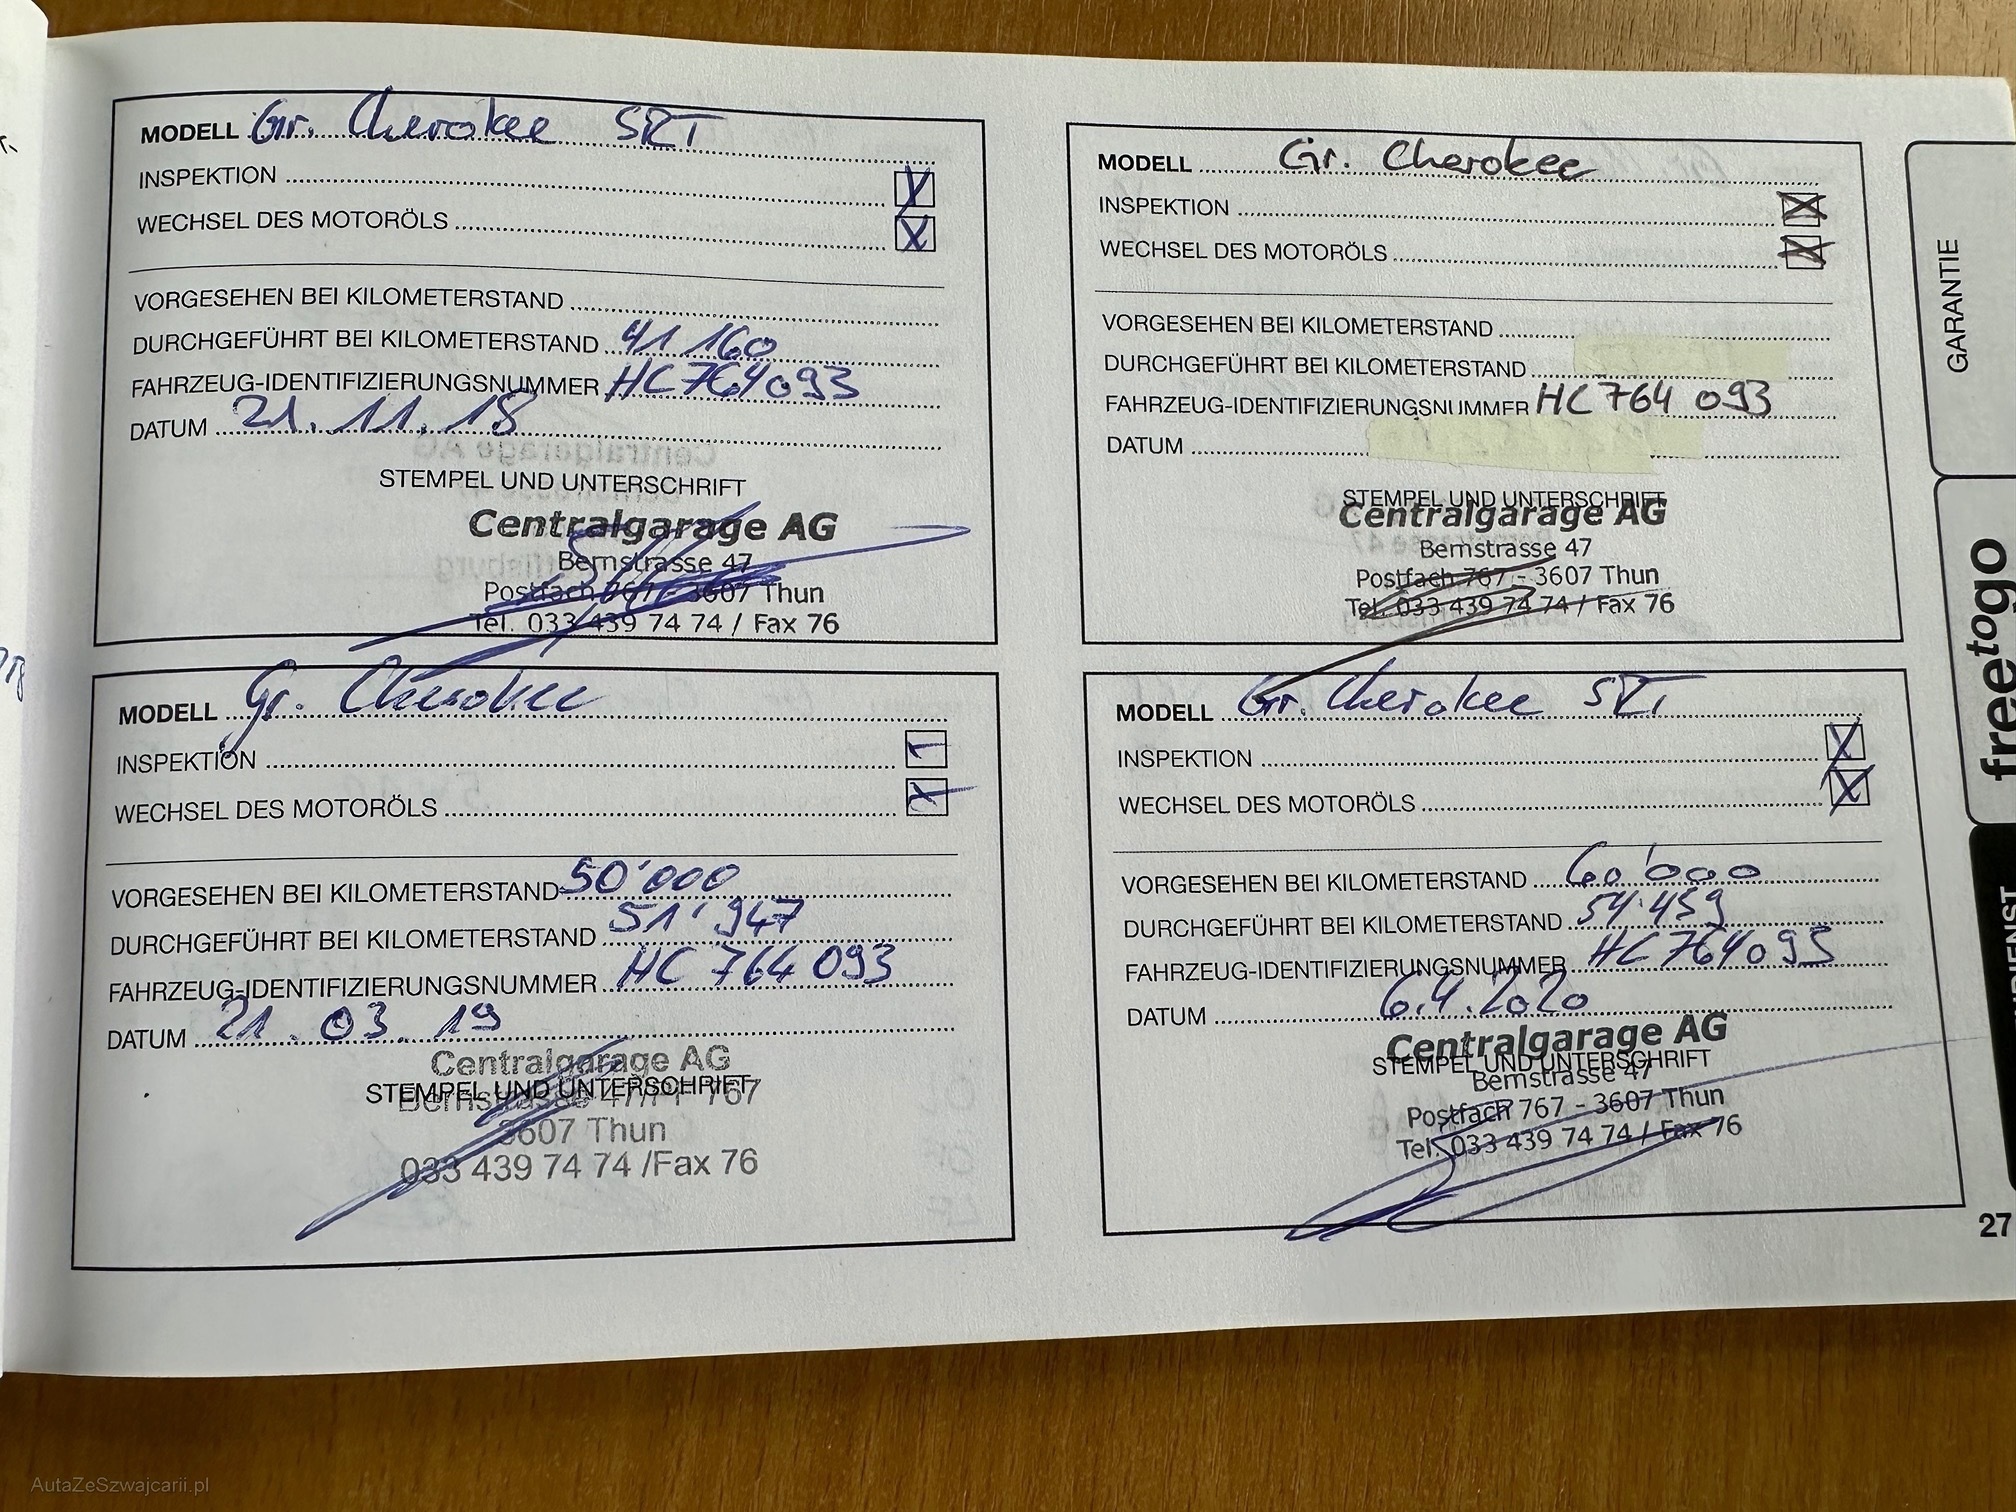 MODELL Gr. Cherokee SRT
INSPEKTION X
WECHSEL DES MOTORÖLS X
VORGESEHEN BEI KILOMETERSTAND
DURCHGEFÜHRT BEI KILOMETERSTAND 41 160
FAHRZEUG-IDENTIFIZIERUNGSNUMMER HC764093
DATUM 21.11.18
STEMPEL UND UNTERSCHRIFT
Centralgarage AG
Bernstrasse 47
Postfach 767 - 3607 Thun
Tel. 033 439 74 74 / Fax 76
MODELL Gr. Cherokee
INSPEKTION
WECHSEL DES MOTORÖLS X
VORGESEHEN BEI KILOMETERSTAND 50'000
DURCHGEFÜHRT BEI KILOMETERSTAND 51'947
FAHRZEUG-IDENTIFIZIERUNGSNUMMER HC 764 093
DATUM 21.03.19
Centralgarage AG
STEMPEL UND UNTERSCHRIFT
Bernstrasse 47/PF 767
3607 Thun
033 439 74 74 /Fax 76
MODELL Gr. Cherokee
INSPEKTION X
WECHSEL DES MOTORÖLS X
VORGESEHEN BEI KILOMETERSTAND
DURCHGEFÜHRT BEI KILOMETERSTAND
FAHRZEUG-IDENTIFIZIERUNGSNUMMER HC 764 093
DATUM
STEMPEL UND UNTERSCHRIFT
Centralgarage AG
Bernstrasse 47
Postfach 767 - 3607 Thun
Tel. 033 439 74 74 / Fax 76
MODELL Gr. Cherokee SRT
INSPEKTION X
WECHSEL DES MOTORÖLS X
VORGESEHEN BEI KILOMETERSTAND 60'000
DURCHGEFÜHRT BEI KILOMETERSTAND 54'459
FAHRZEUG-IDENTIFIZIERUNGSNUMMER HC764093
DATUM 6.4.2020
Centralgarage AG
STEMPEL UND UNTERSCHRIFT
Bernstrasse 47
Postfach 767 - 3607 Thun
Tel. 033 439 74 74 / Fax 76
GARANTIE
freetogo
27
AutaZeSzwajcarii.pl